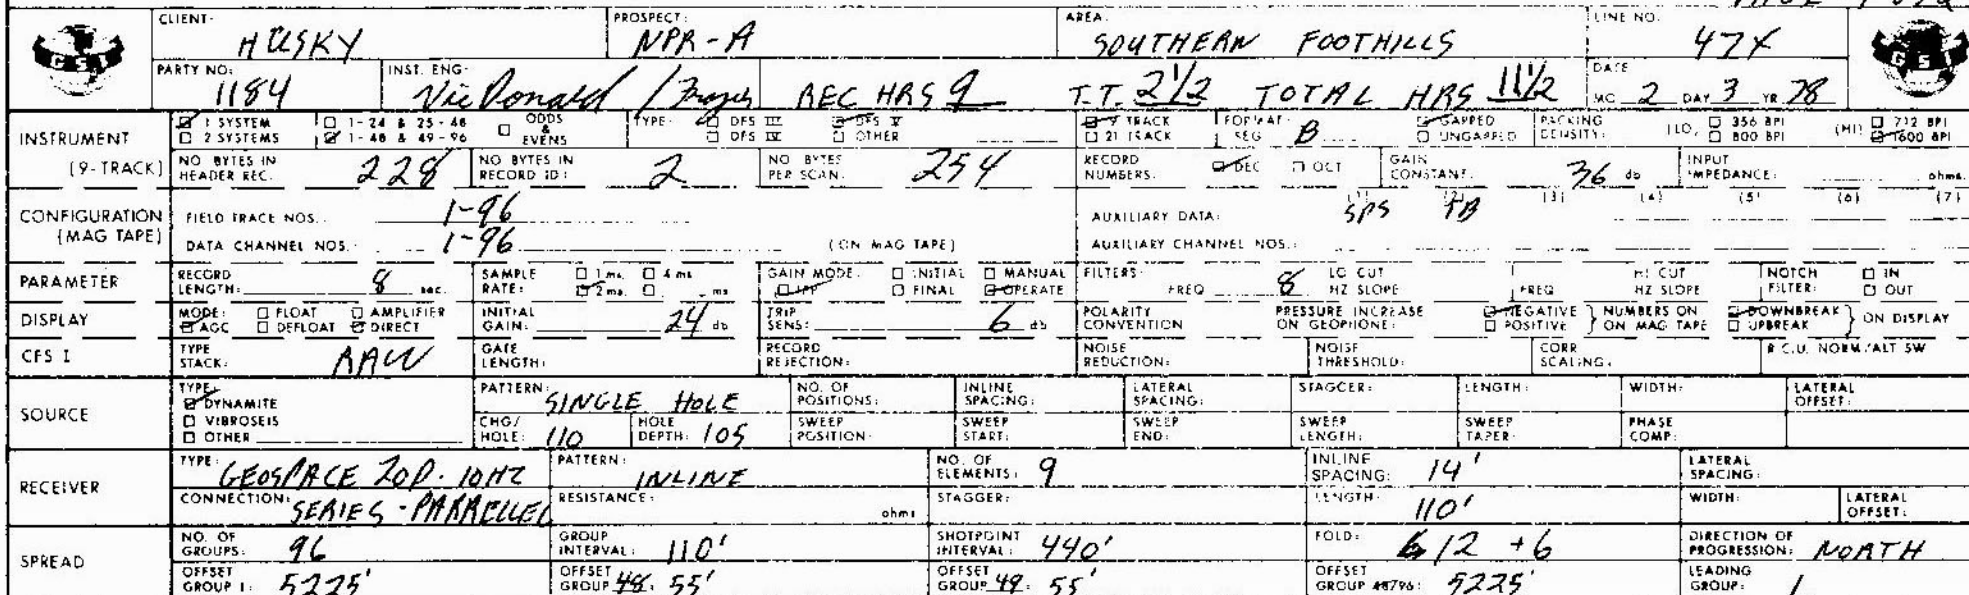 CLIENT: HUSKY PROSPECT: NPR-A AREA: SOUTHERN FOOTHILLS LINE NO. 47X
GSI GSI
PARTY NO: 1184 INST. ENG. Vic Donald / REC HRS 9 T.T. 2 1/2 TOTAL HRS 11 1/2 DATE MO. 2 DAY 3 YR 78
INSTRUMENT (9-TRACK) ☑ 1 SYSTEM ☐ 1-24 & 25-48 ☐ ODDS & EVENS TYPE: ☐ DFS III ☑ DFS V ☑ 9 TRACK FORMAT: SEG B ☑ GAPPED PACKING DENSITY: (LO) ☐ 356 BPI (HI) ☐ 712 BPI
☐ 2 SYSTEMS ☑ 1-48 & 49-96 ☐ DFS IV ☐ OTHER ☐ 21 TRACK ☐ UNGAPPED ☐ 800 BPI ☑ 1600 BPI
NO. BYTES IN HEADER REC. 228 NO BYTES IN RECORD ID: 2 NO BYTES PER SCAN. 254 RECORD NUMBERS. ☑ DEC ☐ OCT GAIN CONSTANT: 36 db INPUT IMPEDANCE: ohms.
CONFIGURATION (MAG TAPE) FIELD TRACE NOS. 1-96 AUXILIARY DATA: (1) SPS (2) TB (3) (4) (5) (6) (7)
DATA CHANNEL NOS. 1-96 (ON MAG TAPE) AUXILIARY CHANNEL NOS.:
PARAMETER RECORD LENGTH: 8 sec. SAMPLE RATE: ☐ 1 ms. ☐ 4 ms ☑ 2 ms. ☐ ms GAIN MODE: ☐ INITIAL ☐ MANUAL ☑ IFP ☐ FINAL ☑ OPERATE FILTERS: FREQ 8 LO CUT HZ SLOPE FREQ HI CUT HZ SLOPE NOTCH FILTER: ☐ IN ☐ OUT
DISPLAY MODE: ☐ FLOAT ☐ AMPLIFIER ☑ AGC ☐ DEFLOAT ☑ DIRECT INITIAL GAIN: 24 db TRIP SENS: 6 db POLARITY CONVENTION PRESSURE INCREASE ON GEOPHONE: ☑ NEGATIVE ☐ POSITIVE } NUMBERS ON ON MAG TAPE ☑ DOWNBREAK ☐ UPBREAK } ON DISPLAY
CFS I TYPE STACK: RAW GATE LENGTH: RECORD REJECTION: NOISE REDUCTION: NOISE THRESHOLD: CORR SCALING: R.C.U. NORM/ALT SW
SOURCE TYPE: ☑ DYNAMITE ☐ VIBROSEIS ☐ OTHER PATTERN: SINGLE HOLE NO. OF POSITIONS: INLINE SPACING: LATERAL SPACING: STAGGER: LENGTH: WIDTH: LATERAL OFFSET:
CHG/HOLE: 110 HOLE DEPTH: 105 SWEEP POSITION: SWEEP START: SWEEP END: SWEEP LENGTH: SWEEP TAPER: PHASE COMP:
RECEIVER TYPE: GEOSPACE 20D. 10HZ PATTERN: INLINE NO. OF ELEMENTS: 9 INLINE SPACING: 14' LATERAL SPACING:
CONNECTION: SERIES-PARRELLEL RESISTANCE: ohms STAGGER: LENGTH: 110' WIDTH: LATERAL OFFSET:
SPREAD NO. OF GROUPS: 96 GROUP INTERVAL: 110' SHOTPOINT INTERVAL: 440' FOLD: 12 +6 DIRECTION OF PROGRESSION: NORTH
OFFSET GROUP 1: 5225' OFFSET GROUP 48: 55' OFFSET GROUP 49: 55' OFFSET GROUP 48/96: 5225' LEADING GROUP: 1